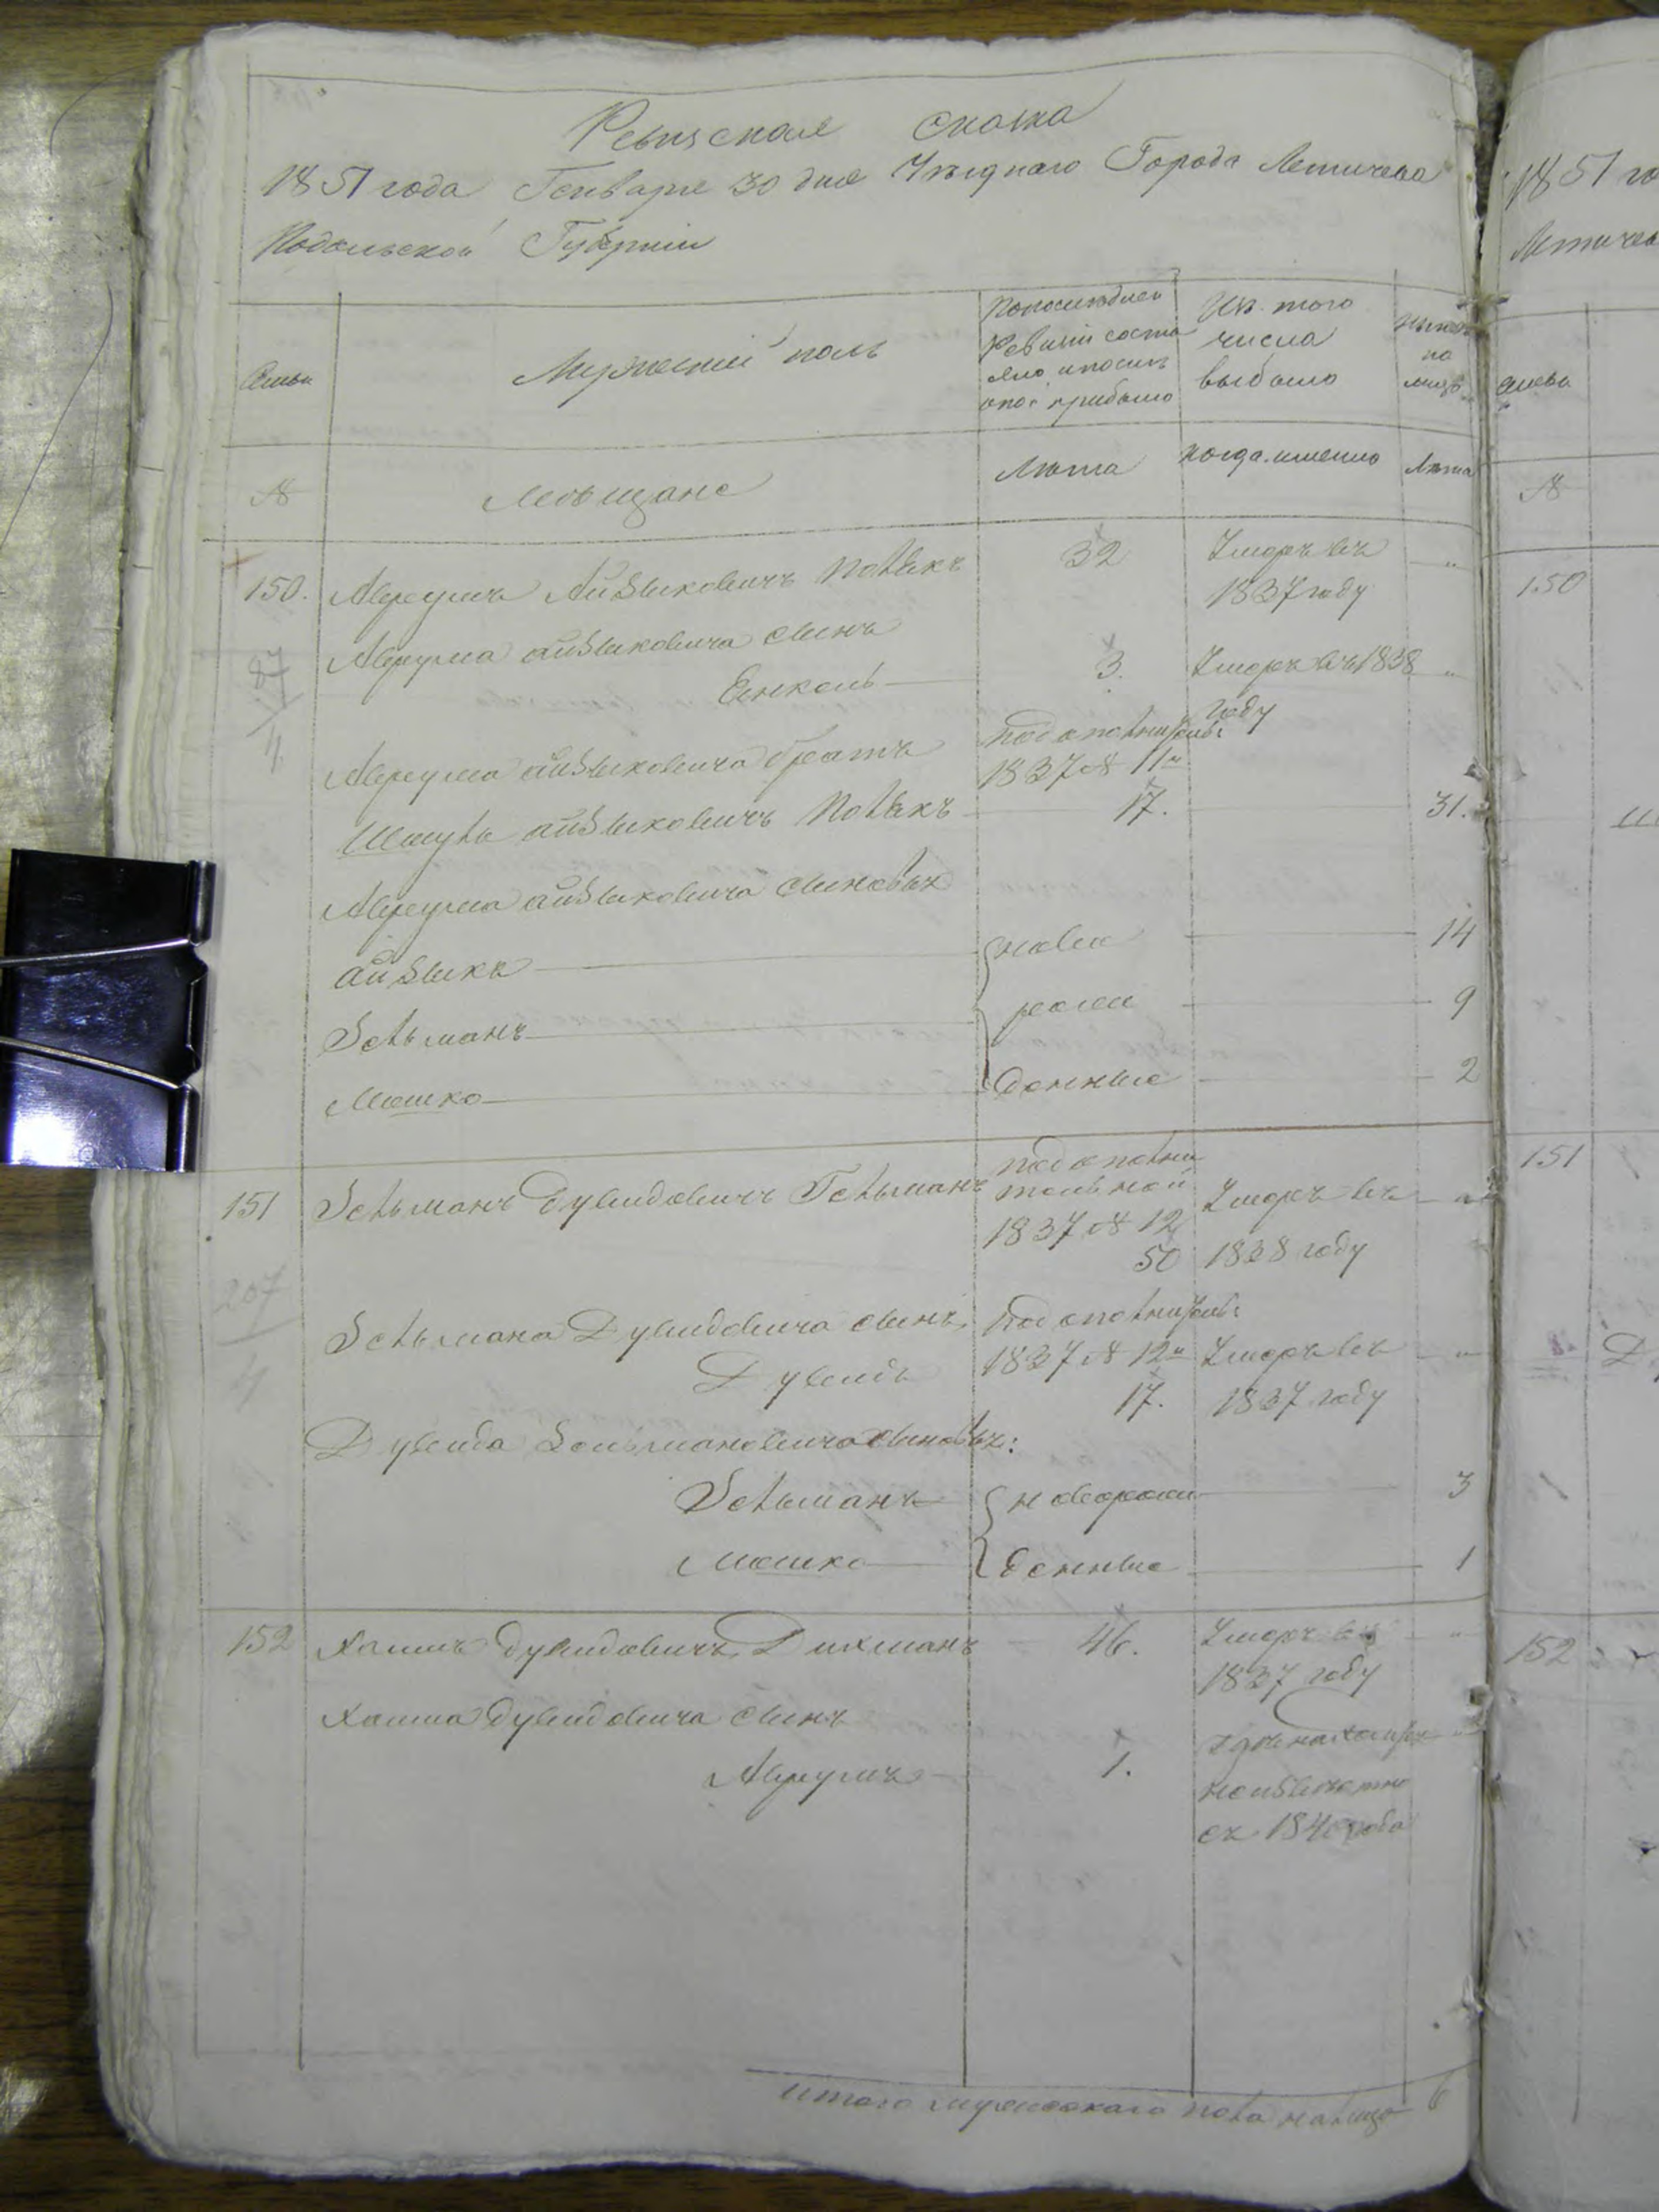 Ревизская сказка
1851 года Генваря 30 дня Уѣзднаго Города Летичева
Подольской Губерніи
Семьи
Мужескій полъ
По последней
Ревизіи состо
яло и послѣ
оной прибыло
Изъ того
числа
выбыло
нынѣ
на
лицо
№
Мѣщане
Лѣта
когда именно
Лѣта
150.
Аврумъ Айзыковичъ Полякъ
32
Умеръ въ
1837 году
"
87
4
Аврума айзыковича сынъ
Енкель
3.
Умеръ въ 1838
году
"
Аврума айзыковича братъ
По дополнитель:
1837 № 11"
Шмуль айзыковичъ Полякъ
17.
31.
Аврума айзыковича сыновья
айзыкъ
ново
14
Зельманъ
рож
9
Мошко
денные
2
151
Зельманъ Дувидовичъ Гельманъ
по дополни
тельной
1837 № 12
50
Умеръ въ
1838 году
"
207
4
Зельмана Дувидовича сынъ
Дувидъ
По дополнитель:
1837 № 12"
17.
Умеръ въ
1837 году
"
Дувида Зельмановича сыновья:
Зельманъ
новорож
3
Мошко
денные
1
152
Хаимъ Дувидовичъ Дихманъ
46.
Умеръ въ
1837 году
"
Хаима Дувидовича сынъ
Аврумъ
1.
неизвестно
съ 1840 года
"
Итого мужескаго пола налицо 6
1851 го
Летичев
Семьи
№
150
151
152